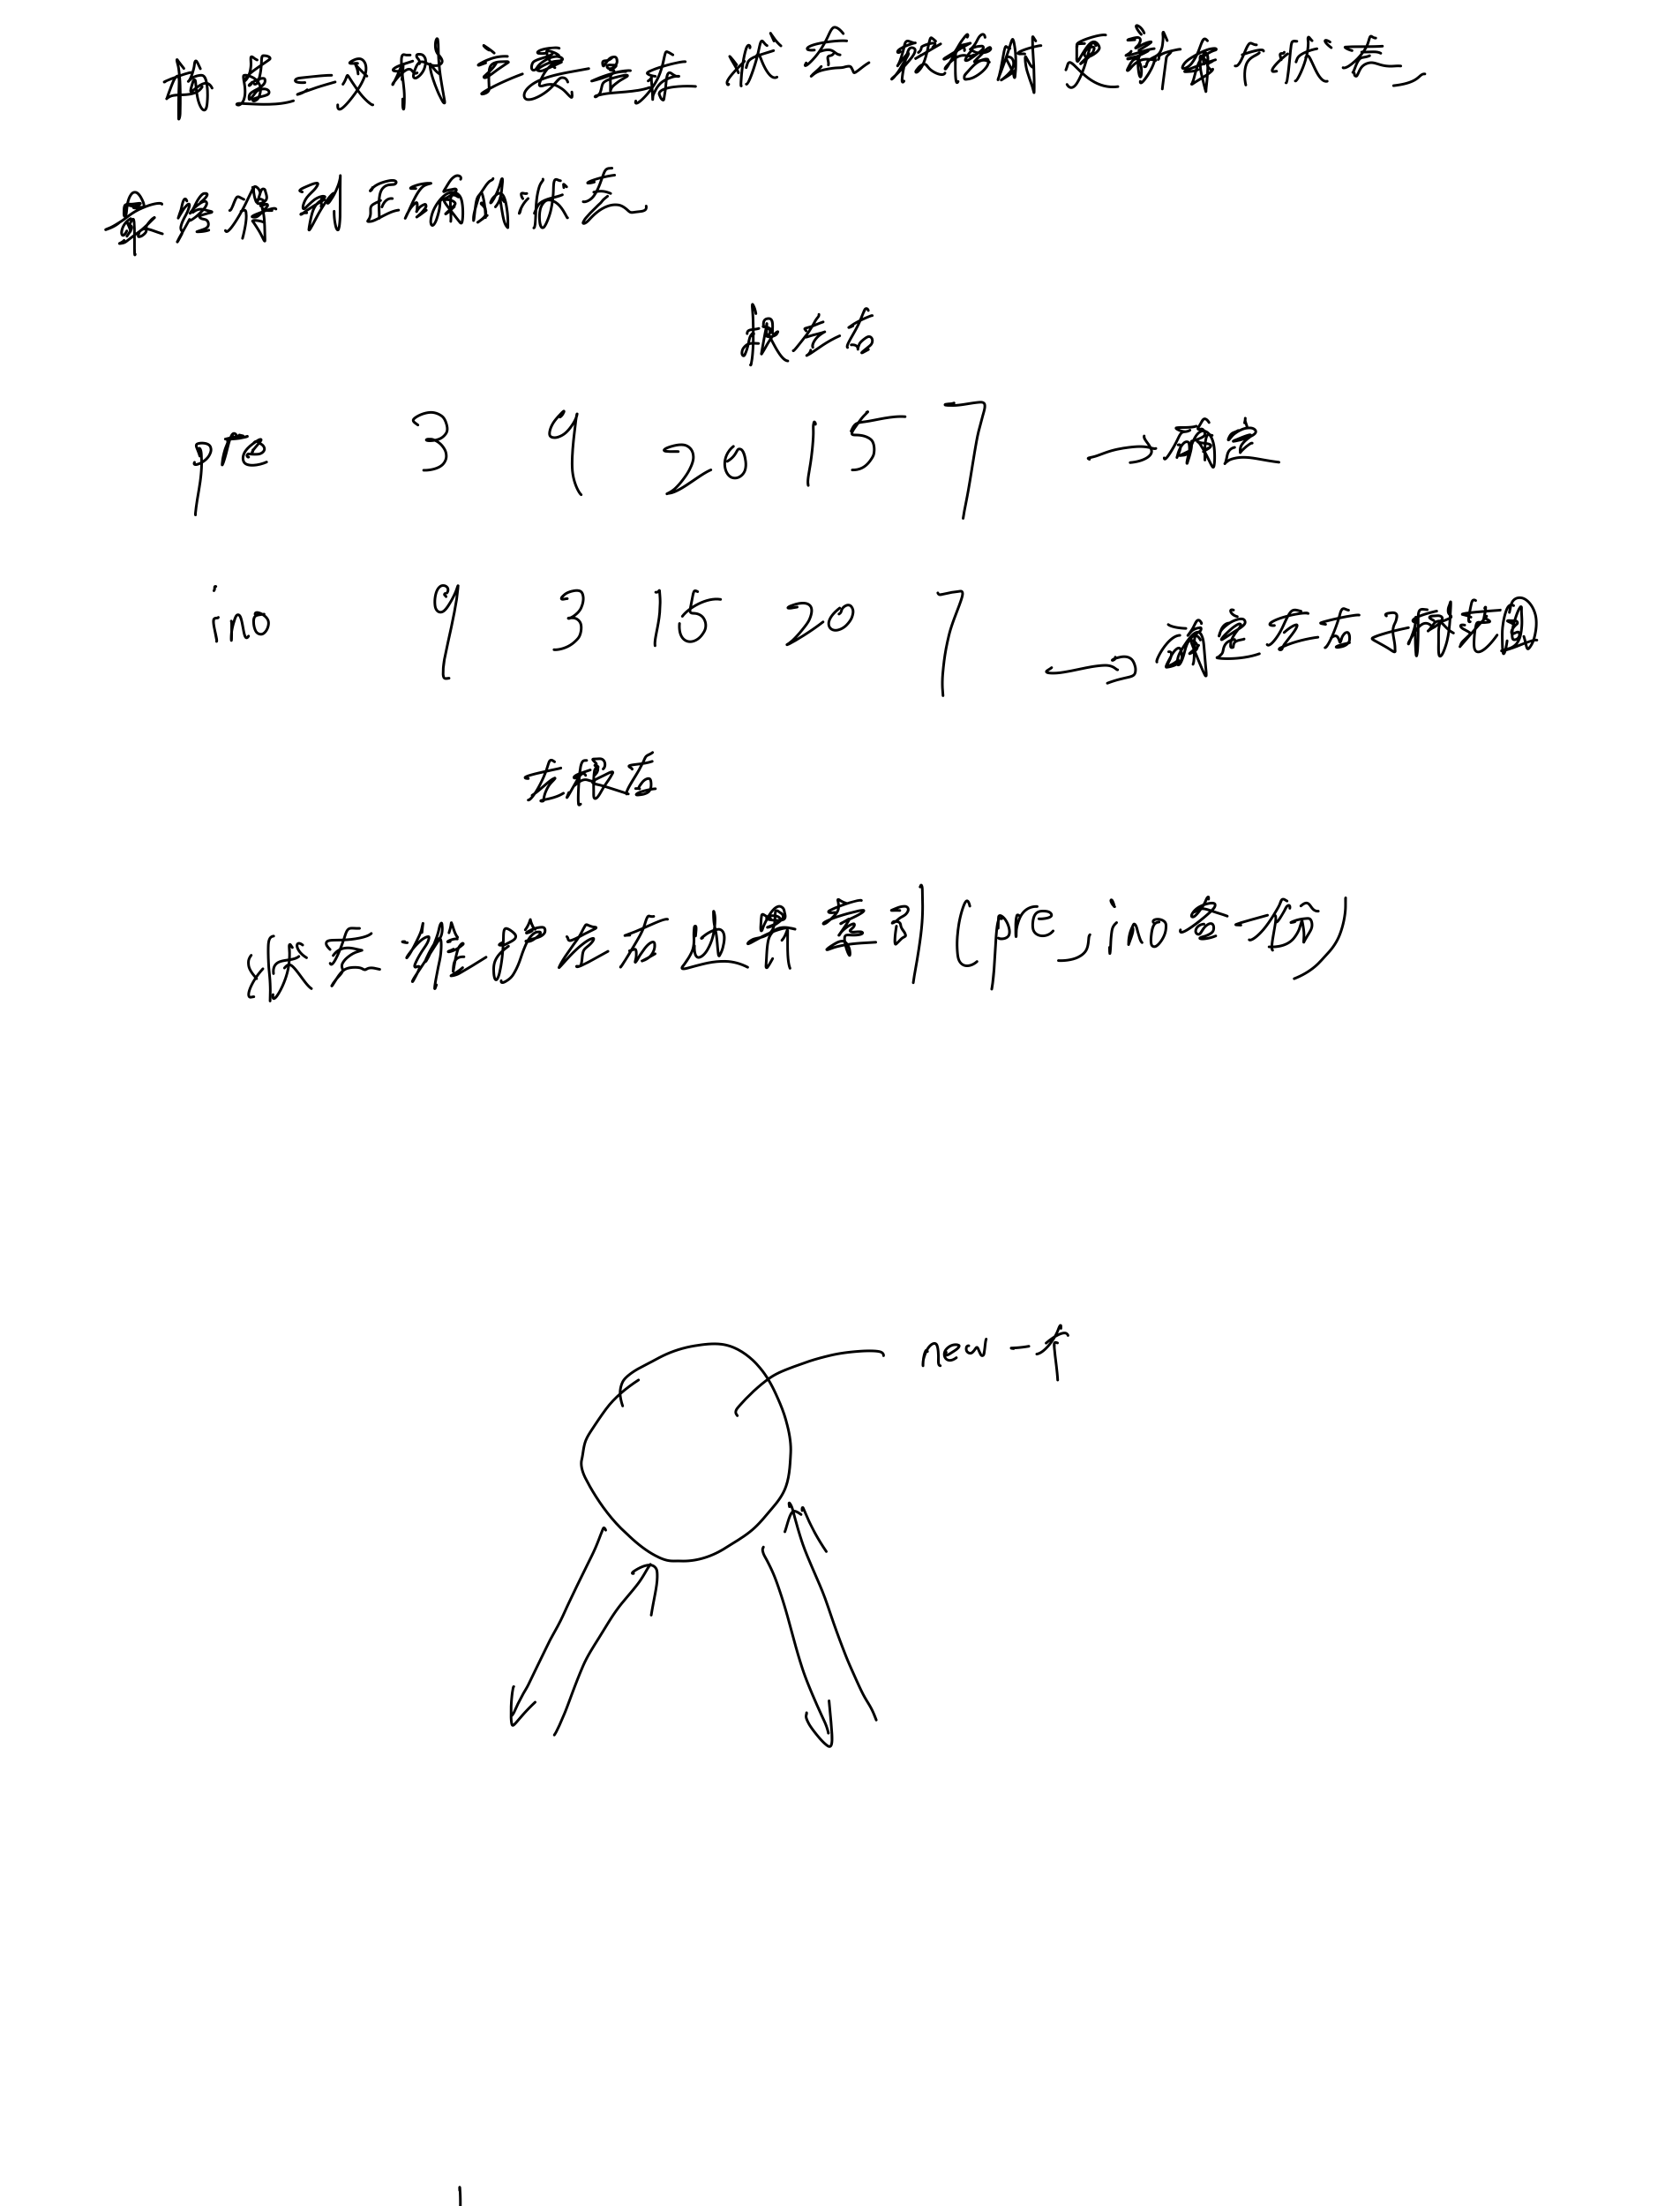 构造二叉树主要是在状态转移时更新每个状态,
最终得到正确的状态
根左右
pre 3 9 20 15 7 → 确定
in 9 3 15 20 7 → 确定左右子树范围
左根右
状态维护左右边界索引(pre、in各一份)
new 一个